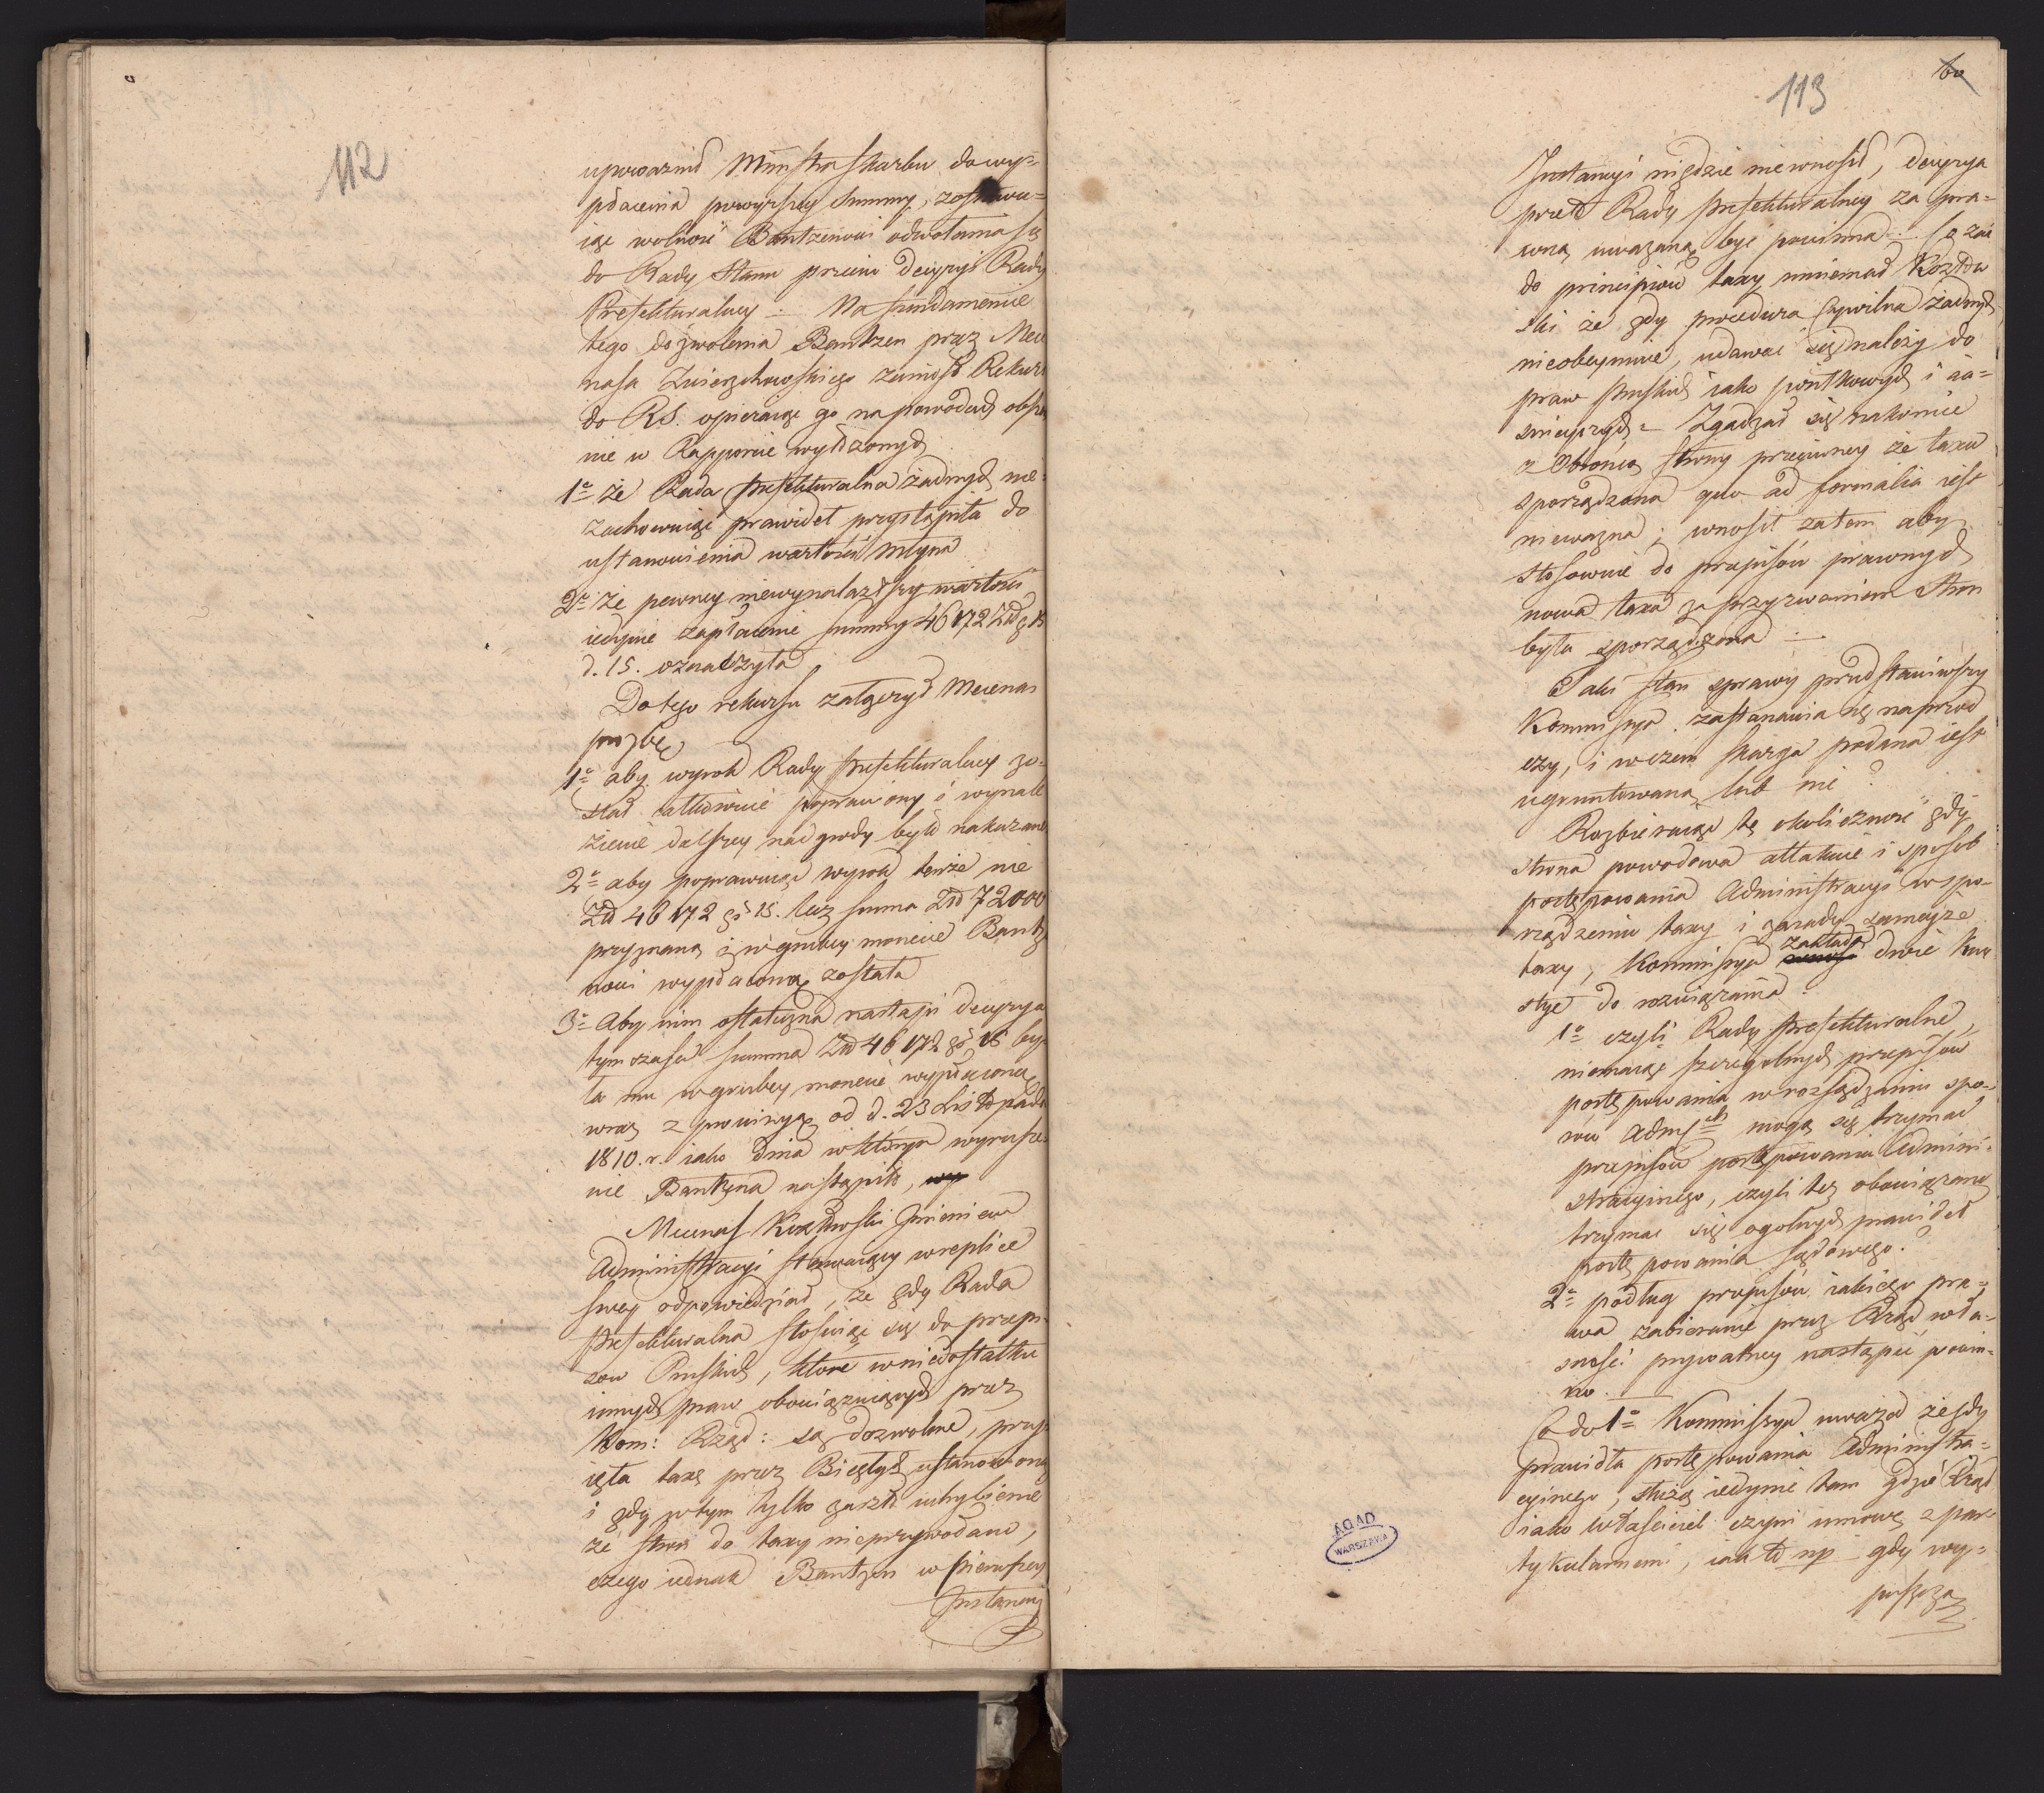 112
upoważnił Ministra Skarbu do wy=
płacenia powyższey Summy, zostawu=
iąc wolność Bantzenowi odwołania się
do Rady Stanu przeciw decyzyi Rady
Prefekturalney :. Na fundamencie
tego dozwolenia Bantzen przez Mece
nasa Zwierzchowskiego zaniósł Rekurs
do RS. opieraiąc go na powodach obszer
nie w Rapporcie wyłuszczonych
1o że Rada Prefekturalna żadnych nie
zachowuiąc prawideł przystąpiła do
ustanowienia wartości młyna
2o że pewney niewynalazłszy wartości
iedynie zapłacenie summy 46172 Złł g 15
d. 15. oznaczyła
Do tego rekursu załączył Mecenas
prozbę
1o aby wyrok Rady Prefekturalney zo=
stał całkowicie poprawiony i wynale
zienie dalszey nadgrody było nakazane
2o aby poprawuiąc wyrok tenże nie
Złł 46172 gr 15. lecz summa Złł 72000
przyznaną i w grubey monecie Bantze
nowi wypłaconą została
3o Aby nim ostateczna nastąpi decyzya
tymczasem summa Złł 46172 gr 15 by
ła mu w grubey monecie wypłaconą
wraz z prowizyą od d. 23 Listopada
1810. r. iako dnia w którym wyrusze=
nie Bantzena nastąpiło, wy
Mecenas Kozłowski Imieniem
Administracyi stawaiący w replice
swey odpowiedział, że gdy Rada
Prefekturalna stosuiąc się do przepi=
sow Pruskich, które w niedostatku
innych praw obowiązuiących przez
Kom: Rząd: są dozwolone, przy=
ięła taxę przez Biegłych ustanowioną
i gdy w tym tylko zaszło uchybienie
że stron do taxy nieprzywołano,
czego iednak Bantzen w pierwszey
Instancyi
113
60
Instancyi nigdzie niewnosił, decyzya
przeto Rady Prefekturalney za pra=
wną uważaną być powinna :. Co zaś
do principiów taxy mniemał Kozłow
ski że gdy procedura Cywilna żadnych
nieobeymuie, udawać się należy do
praw Pruskich iako
Zgadzał się nakoniec
z Obrońcą strony przeciwney że taxa
sporządzona quo ad formalia iest
nieważna; wnosił zatem aby
stosownie do przepisów prawnych
nowa taxa za przyzwaniem Stron
była sporządzona :.
Taki stan sprawy przedstawiwszy
Kommissya zastanawia się naprzód
czy, i w czem skarga podana iest
ugruntowana, lub nie?
Rozbieraiąc tę okoliczność gdy
strona powodowa attakuie i sposób
postępowania Administracyi w spo=
rządzeniu taxy i zasady samejże
taxy, Kommissya zakłada dwie kwe
stye do rozwiązania:
1o czyli Rady Prefekturalne,
niemaiąc szczególnych przepisów
postępowania w rozsądzaniu spo=
rów Admych mogą się trzymać
przepisów postępowania Admini=
stracyinego, czyli też obowiązane
trzymać się ogólnych prawideł
postępowania Sądowego?
2o podług przepisów iakiego pra=
wa zabieranie przez Rząd wła=
sności prywatney nastąpić powin=
no.
Co do 1o Kommissya uważa że gdy
prawidła postępowania Administra=
cyinego, służą iedynie tam gdzie Rząd
iako właściciel czyni umowę z par=
tykularnemi, iak to np gdy wy=
puszcza
AGAD
WARSZAWA